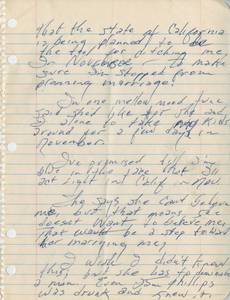 that the state of California
is being planned to be
the tool for ditching me,
In November - to make
sure I'm stopped from
planning marriage!
In one mellow mood June
said she'd like for the
alone take kids
around for a few days in
November.
I've promised
else in the lake that I'll
out right in Calif in Nov.
She says she can't help
me, but that means she
doesn't want to believe me,
that would be a step toward
her marrying me,
I wish I didn't know
this, but she has to
a man. Even Sam Phillips
was drunk and knew it